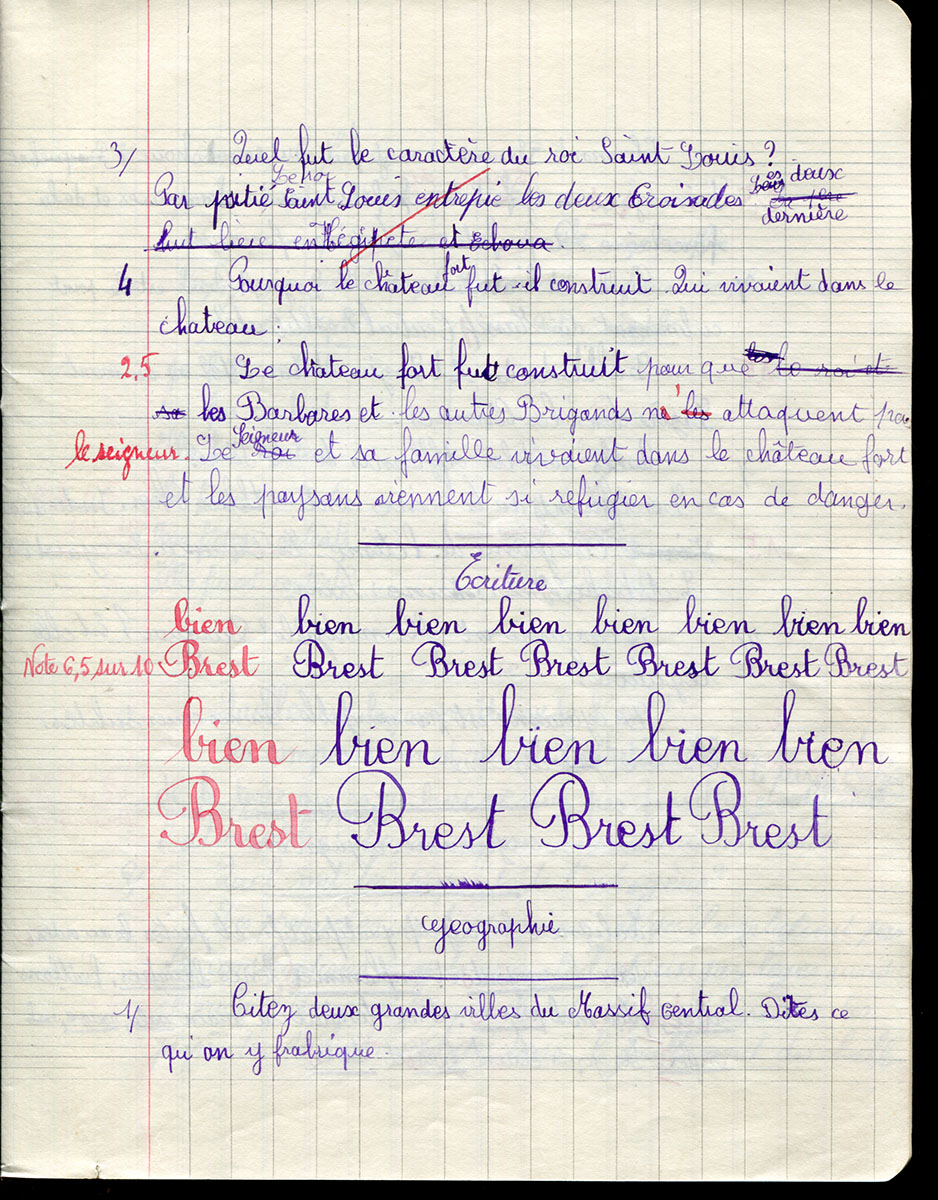 3/ Quel fut le caractère du roi Saint Louis ?
Par pitié Saint Louis entrepie les deux Croisades Les deux
dernière
Hut liere en Hégipete et Echoua.
4 Pourquoi le château fort fut-il construit. Qui vivaient dans le
chateau.
2,5 Le château fort fut construit pour que les le roi et
sa les Barbares et les autres Brigands n' les attaquent pas
le seigneur. Le Seigneur Roi et sa famille vivaient dans le château fort
et les paysans viennent si refugier en cas de danger.
Écriture
bien bien bien bien bien bien bien bien
Note 6,5 sur 10. Brest Brest Brest Brest Brest Brest Brest
bien bien bïen bien bien
Brest Brest Brest Brest
Geographie
1/ Citez deux grandes villes du Massif central. Dites ce
qu'on y frabrique.